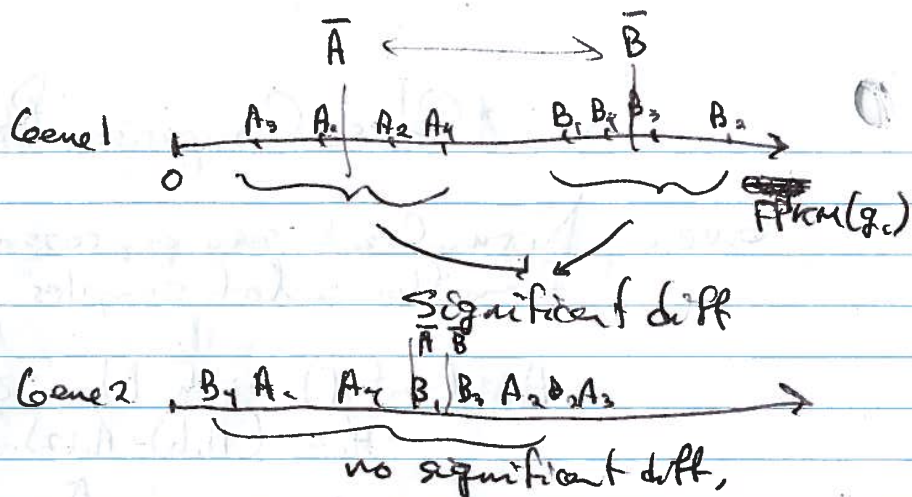 A̅ B̅
Gene 1 A₃ A₁ A₂ A₄ B₁ B₄ B₃ B₂
0 FPKM(gᵢ)
Significant diff
A̅ B̅
Gene 2 B₄ A₁ A₄ B₁ B₃ A₂ B₂ A₃
no significant diff,